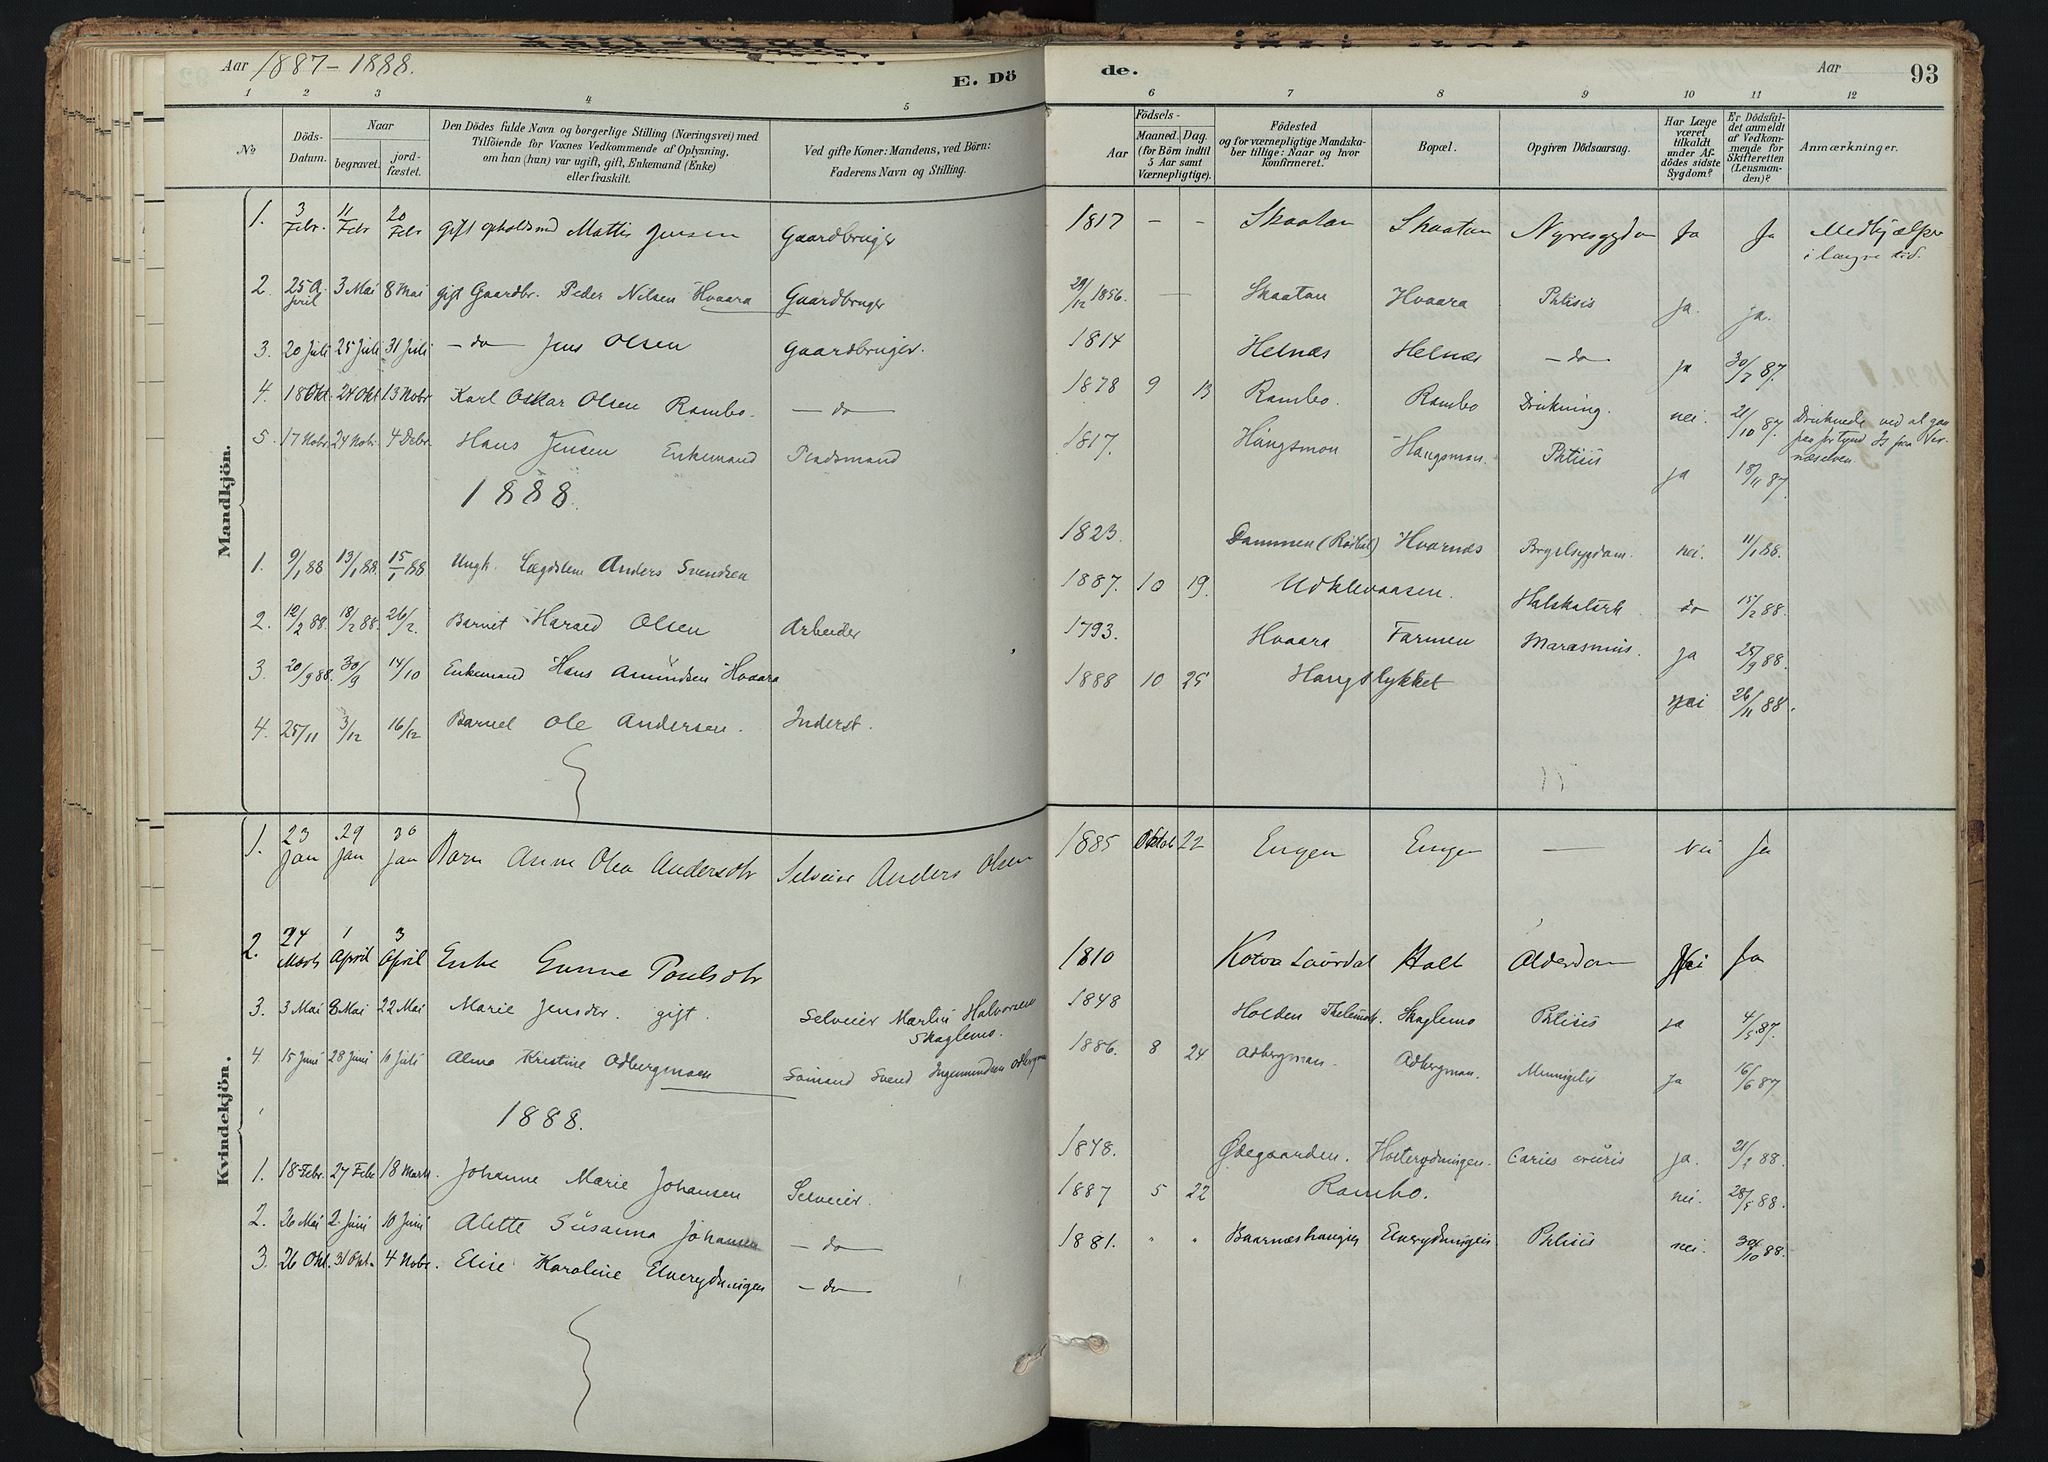 Aar 1887-1888. E. Dö
de. Aar 93
1 2 3 4 5
6 7 8 9 10 11 12
No Döds-Datum. Naar begravet. jordfæstet.
Den Dödes fulde Navn og borgerlige Stilling (Næringsvei) med
Tilföiende for Voxnes Vedkommende af Oplysning,
om han (hun) var ugift, gift, Enkemand (Enke)
eller fraskilt.
Ved gifte Koner: Mandens, ved Börn:
Faderens Navn og Stilling.
Födsels-
Aar Maaned. Dag.
(for Börn indtil
5 Aar samt
Værnepligtige).
Födested
og for værnepligtige Mandskaber tillige: Naar og hvor
konfirmeret.
Bopæl.
Opgiven Dödsaarsag.
Har Læge været tilkaldt under Afdödes sidste Sygdom?
Er Dödsfaldet anmeldt af Vedkommende for Skifteretten (Lensmanden)?
Anmærkninger.
Mandkjön.
1. 3 Febr. 11 Febr 20 Febr Gift Mattis Jensen Gaardbruger 1817 - - Skaatan Skaatan Nyresygdom Ja Ja Medhjælper
i længre tid.
2. 25 April 3 Mai 8 Mai gift Gaardbr. Peder Nilsen Hvaara Gaardbruger 29/12 1856. — Skaatan Hvaara Phtisis ja. ja.
3. 20 Juli 25 Juli 31 Juli - do - Jens Olsen Gaardbruger. 1814 Helnæs Helnæs - do - ja 30/7 87.
4. 18 Okt. 24 Okt 13 Nobr. Karl Oskar Olsen Rambo. - do - 1878 9 13 Rambo. Rambo Drukning. nei. 21/10 87. Druknede ved at gaa
paa for tynd Is
5. 17 Nobr. 24 Nobr. 4 Debr. Hans Jensen Enkemand Pladsmand 1817. Hångsmon Hångsmon. Phtisis ja 18/11 87.
1888.
1. 9/1 88 13/1 88. 15/1 88 Ungk. Lægdslem Anders Svendsen 1823. Dammen Hvarnæs nei. 11/1 88.
2. 12/2 88. 18/2 88. 26/2. Barnet Harald Olsen Arbeider 1887. 10 19. Udklevaasen. Halskatarh. do 15/2 88.
3 20/9 88. 30/9 14/10 Enkemand Hans Amundsen Hvaara 1793. Hvaara Farmen Marasmus. ja 25/9 88.
4. 25/11 3/12 16/12 Barnet Ole Andersen. Inderst. 1888 10 25 Hangslykket nei 26/11 88.
Kvindekjön.
1. 23 Jan 29 Jan 30 Jan Barn Anne Olea Andersdtr Selveier Anders Olsen 1885 Oktob 22 Engen Engen — Nei Ja
2. 24 Marts 1 April 3 April Enke Gunne Poulsdtr 1810 Laurdal Holt Alderdom Nei Ja
3. 3 Mai 8 Mai 22 Mai Marie Jensdtr. gift. Selveier Martin Halvorsen
Skaglemo. 1848 Holden Thelemark. Skaglemo Phtisis ja 4/5 87.
4 15 Juni 28 Juni 10 Juli Alma Kristine Odbergmoen Sömand Svend Ingemundsen 1886. 8 24 Odbergmoen. Odbergmoen. Meningitis ja 16/6 87.
1888.
1. 18 Febr. 27 Febr 18 Marts. Johanne Marie Johansen Selveier. 1848. Ødegaarden. Holterydningen. Caries cruris ja. 21/2 88.
2. 26 Mai 2. Juni 10 Juni Alette Susanna Johansen - do - 1887 5 22 Rambo. nei. 28/5 88.
3. 26 Okt. 31 Okt. 4 Nobr. Elise Karoline Elverydningen - do - 1881. " " Elverydningen Phtisis nei. 30/10 88.